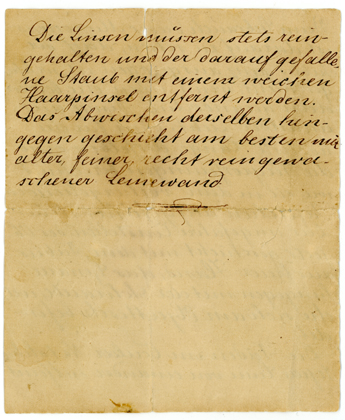 Die Linsen müssen stets rein
gehalten und der darauf gefalle
ne Staub mit einem weichen
Haarpinsel entfernt werden.
Das Abwischen derselben hin-
gegen geschieht am besten mit
alter, feiner, recht reingewa-
schener Leinewand